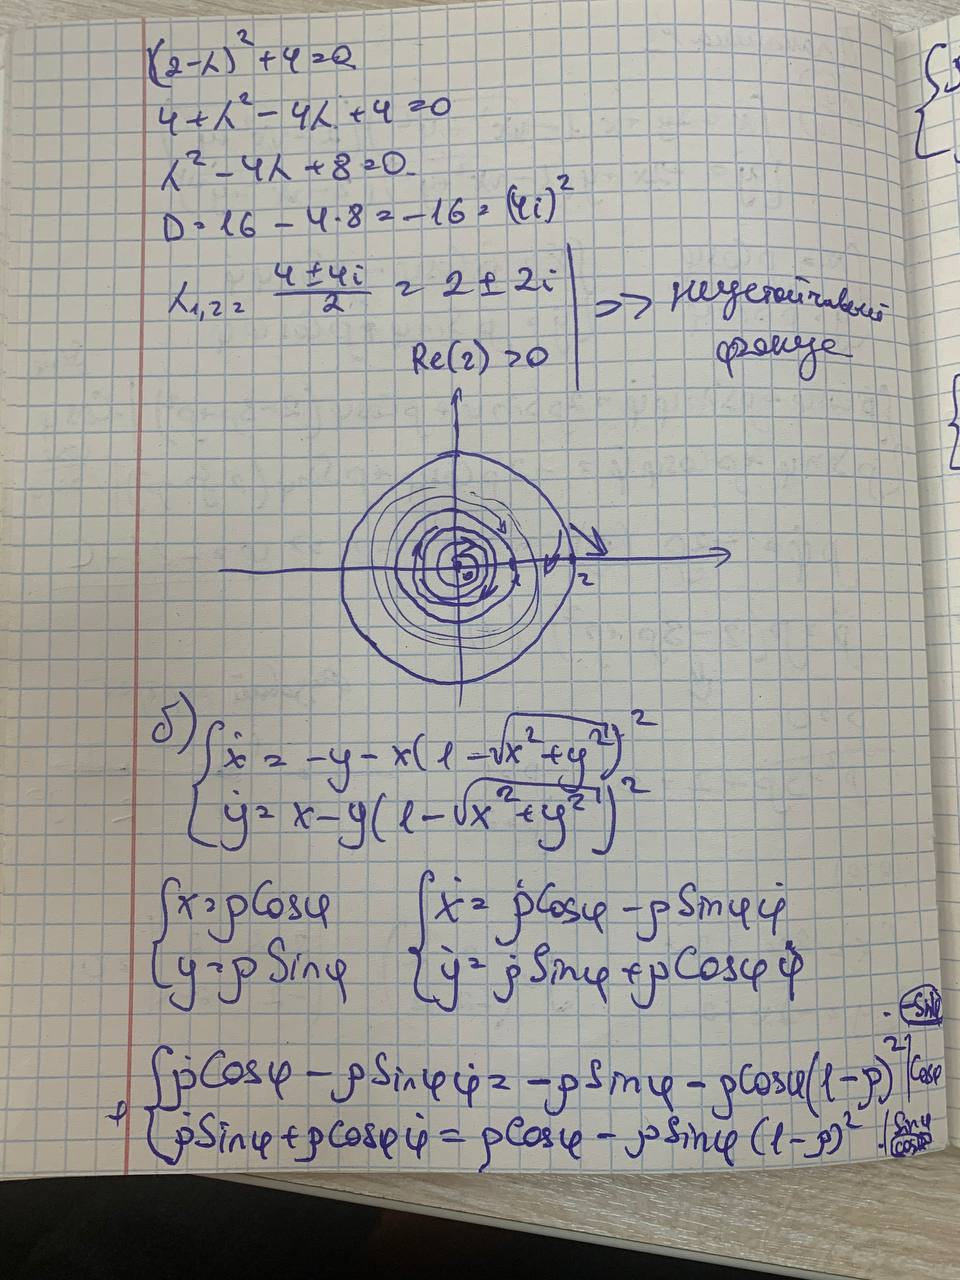 (2-λ)² + 4 = 0
4 + λ² - 4λ + 4 = 0
λ² - 4λ + 8 = 0
D = 16 - 4·8 = -16 = (4i)²
λ₁,₂ = (4 ± 4i)/2 = 2 ± 2i | => неустойчивый
Re(2) > 0 | фокус
2
б) { ẋ = -y - x(1 - √(x² + y²))²
{ ẏ = x - y(1 - √(x² + y²))²
{ x = ρ Cosφ { ẋ = ρ̇ Cosφ - ρ Sinφ φ̇
{ y = ρ Sinφ { ẏ = ρ̇ Sinφ + ρ Cosφ φ̇
· -Sinφ
{ ρ̇ Cosφ - ρ Sinφ φ̇ = -ρ Sinφ - ρ Cosφ (1-ρ)² | Cosφ
+ { ρ̇ Sinφ + ρ Cosφ φ̇ = ρ Cosφ - ρ Sinφ (1-ρ)² ·| Sinφ
Cosφ